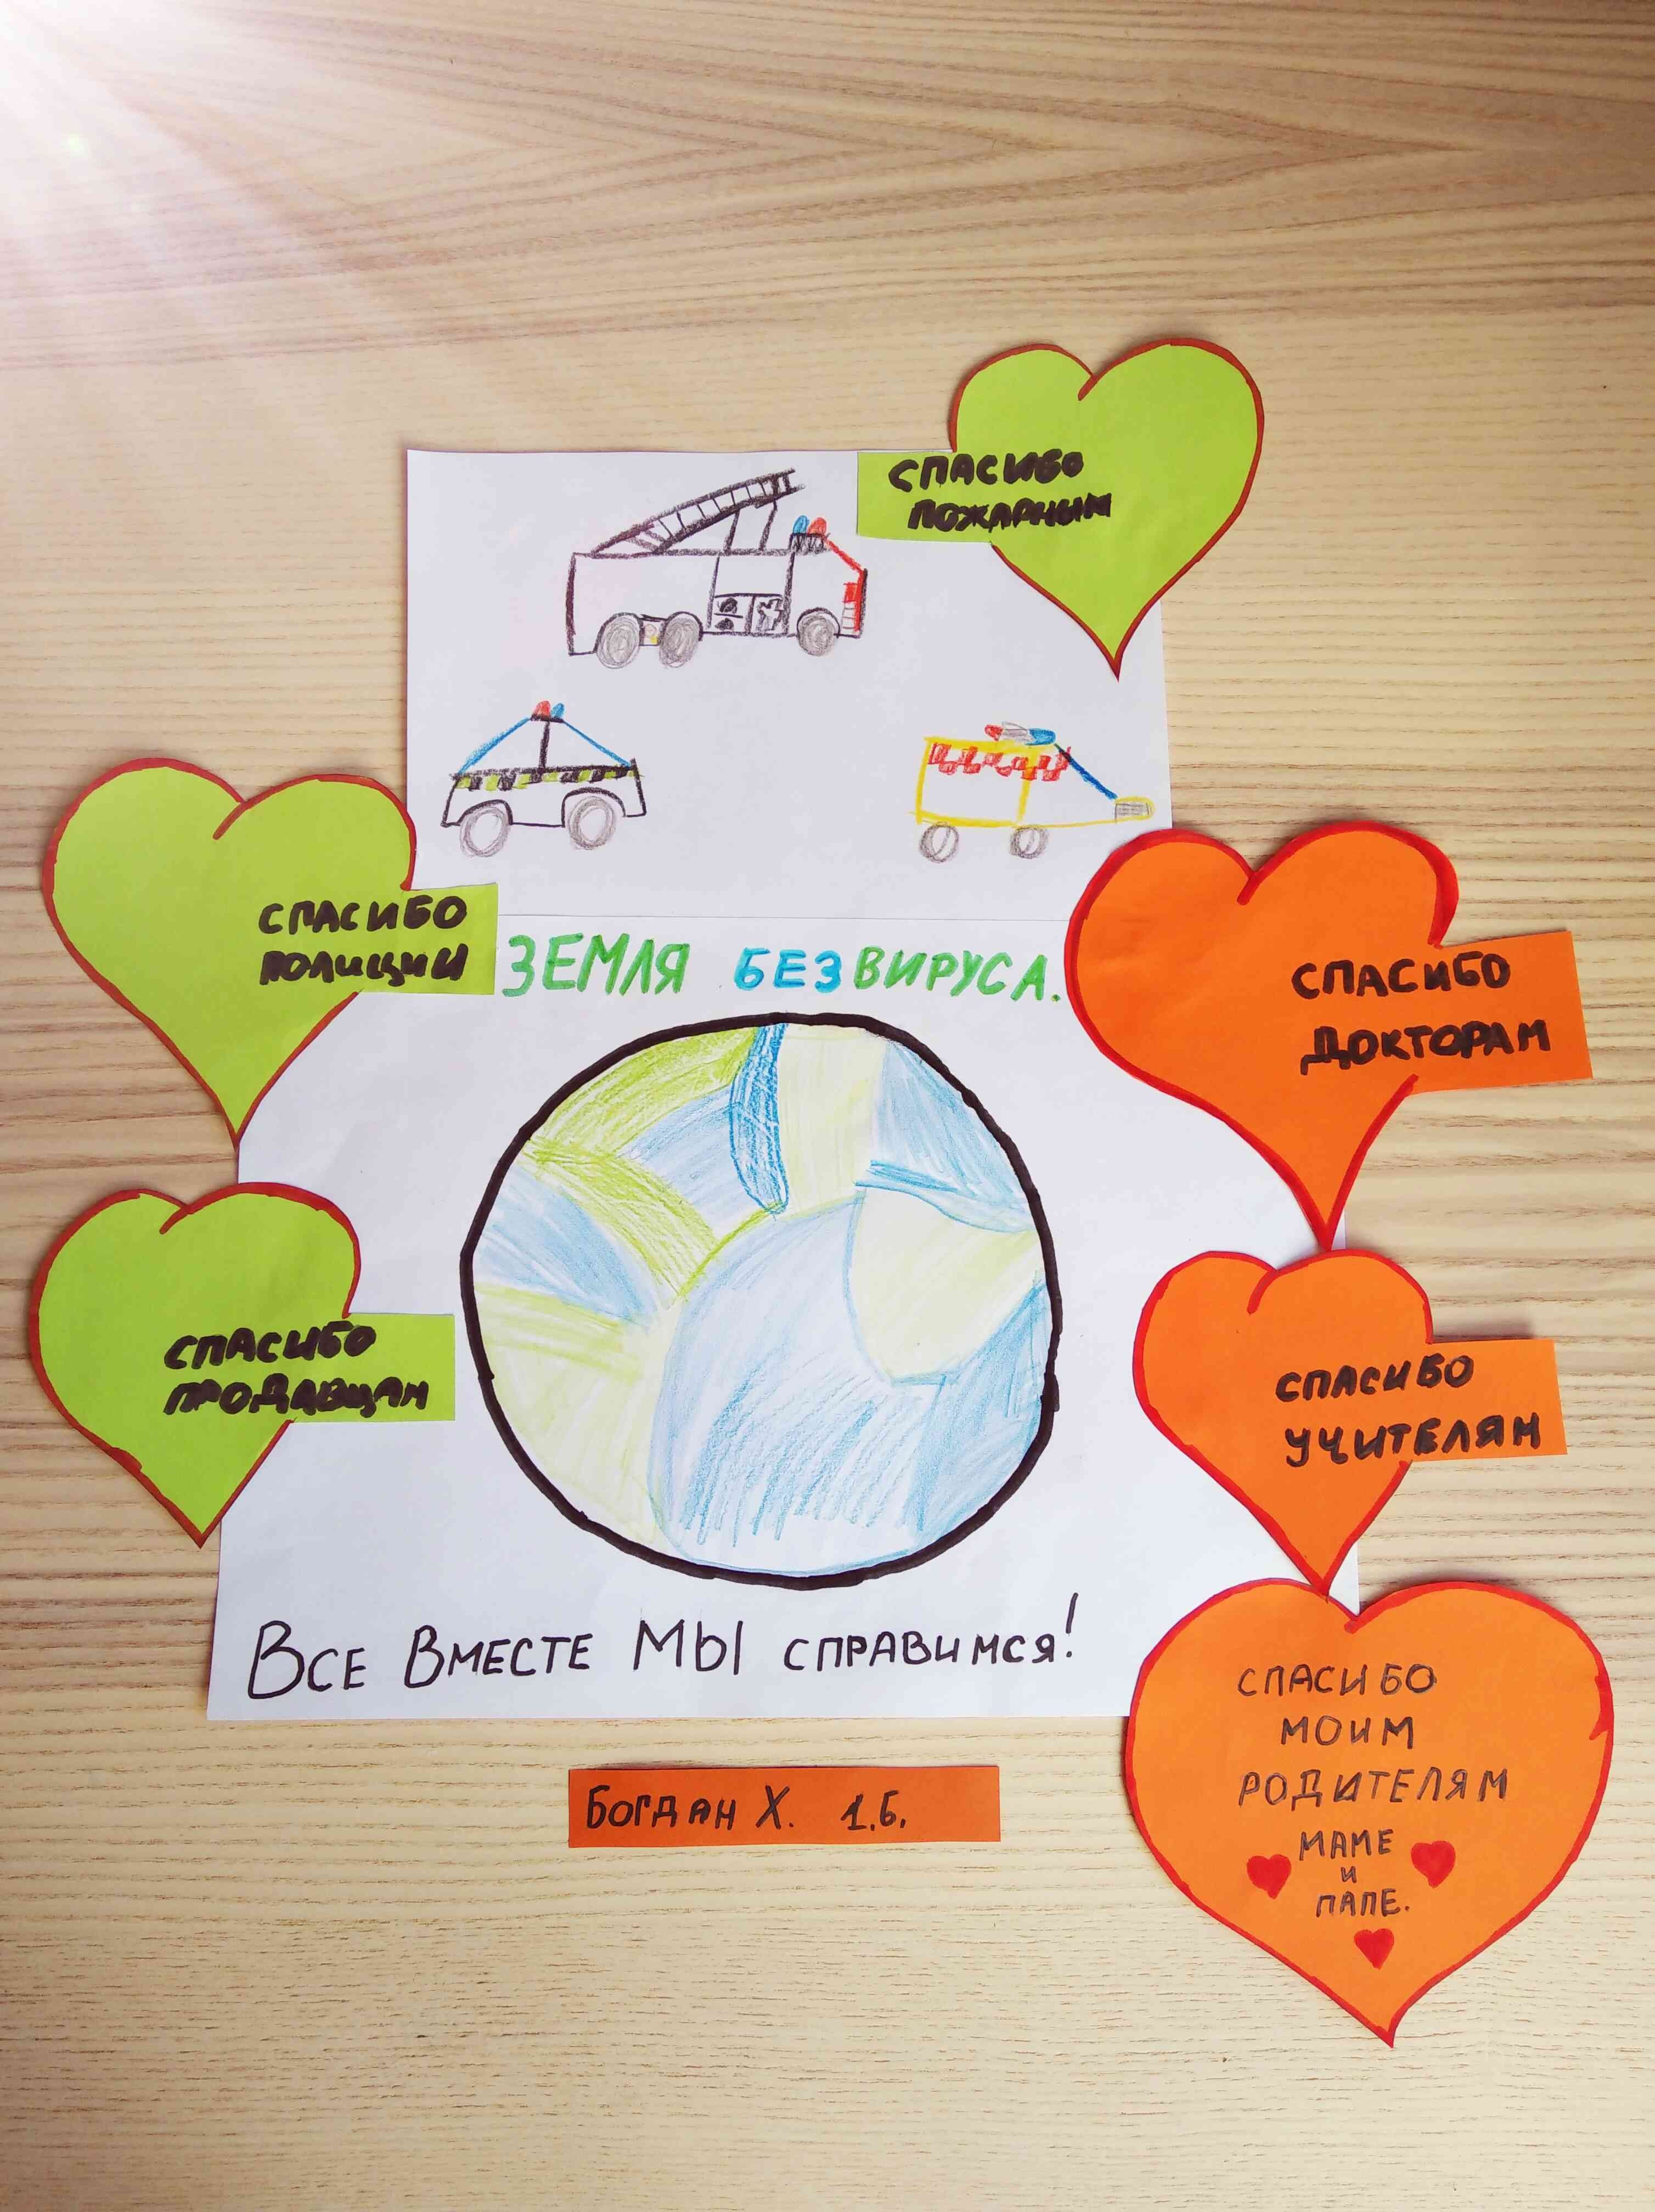 СПАСИБО
ПОЖАРНЫМ
СПАСИБО
ПОЛИЦИИ
ЗЕМЛЯ БЕЗ ВИРУСА.
СПАСИБО
ДОКТОРАМ
СПАСИБО
ПРОДАВЦАМ
СПАСИБО
УЧИТЕЛЯМ
ВСЕ ВМЕСТЕ МЫ СПРАВИМСЯ!
СПАСИБО
МОИМ
РОДИТЕЛЯМ
МАМЕ
И
ПАПЕ.
БОГДАН Х. 1.Б.